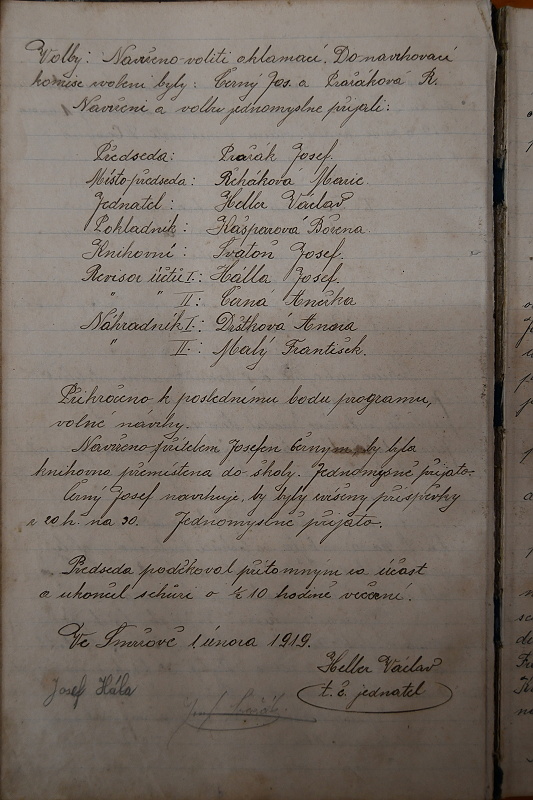 Volby: Navrženo voliti aklamací. Do navrhovací
komise voleni byly: Černý Jos. a Pražáková R.
Navrženi a volbu jednomyslně přijali:
Předseda: Pražák Josef.
Místo-předseda: Řeháková Marie.
Jednatel: Heller Václav
Pokladník: Kašparová Božena.
Knihovní: Svatoň Josef.
Revisor účtů I.: Hálla Josef.
" " II.: Černá Anežka
Náhradník I.: Drštková Anna
" II.: Malý František.
Přikročeno k poslednímu bodu programu,
volné návrhy.
Navrženo přítelem Josefem Černým, by byla
knihovna přemístěna do školy. Jednomyslně přijato.
Černý Josef navrhuje, by byly zvýšeny příspěvky
z 20 h. na 30. Jednomyslně přijato.
Předseda poděkoval přítomným za účast
a ukončil schůzi o ½ 10 hodině večerní.
Ve 1. února 1919.
Heller Václav
t. č. jednatel
Josef Hála